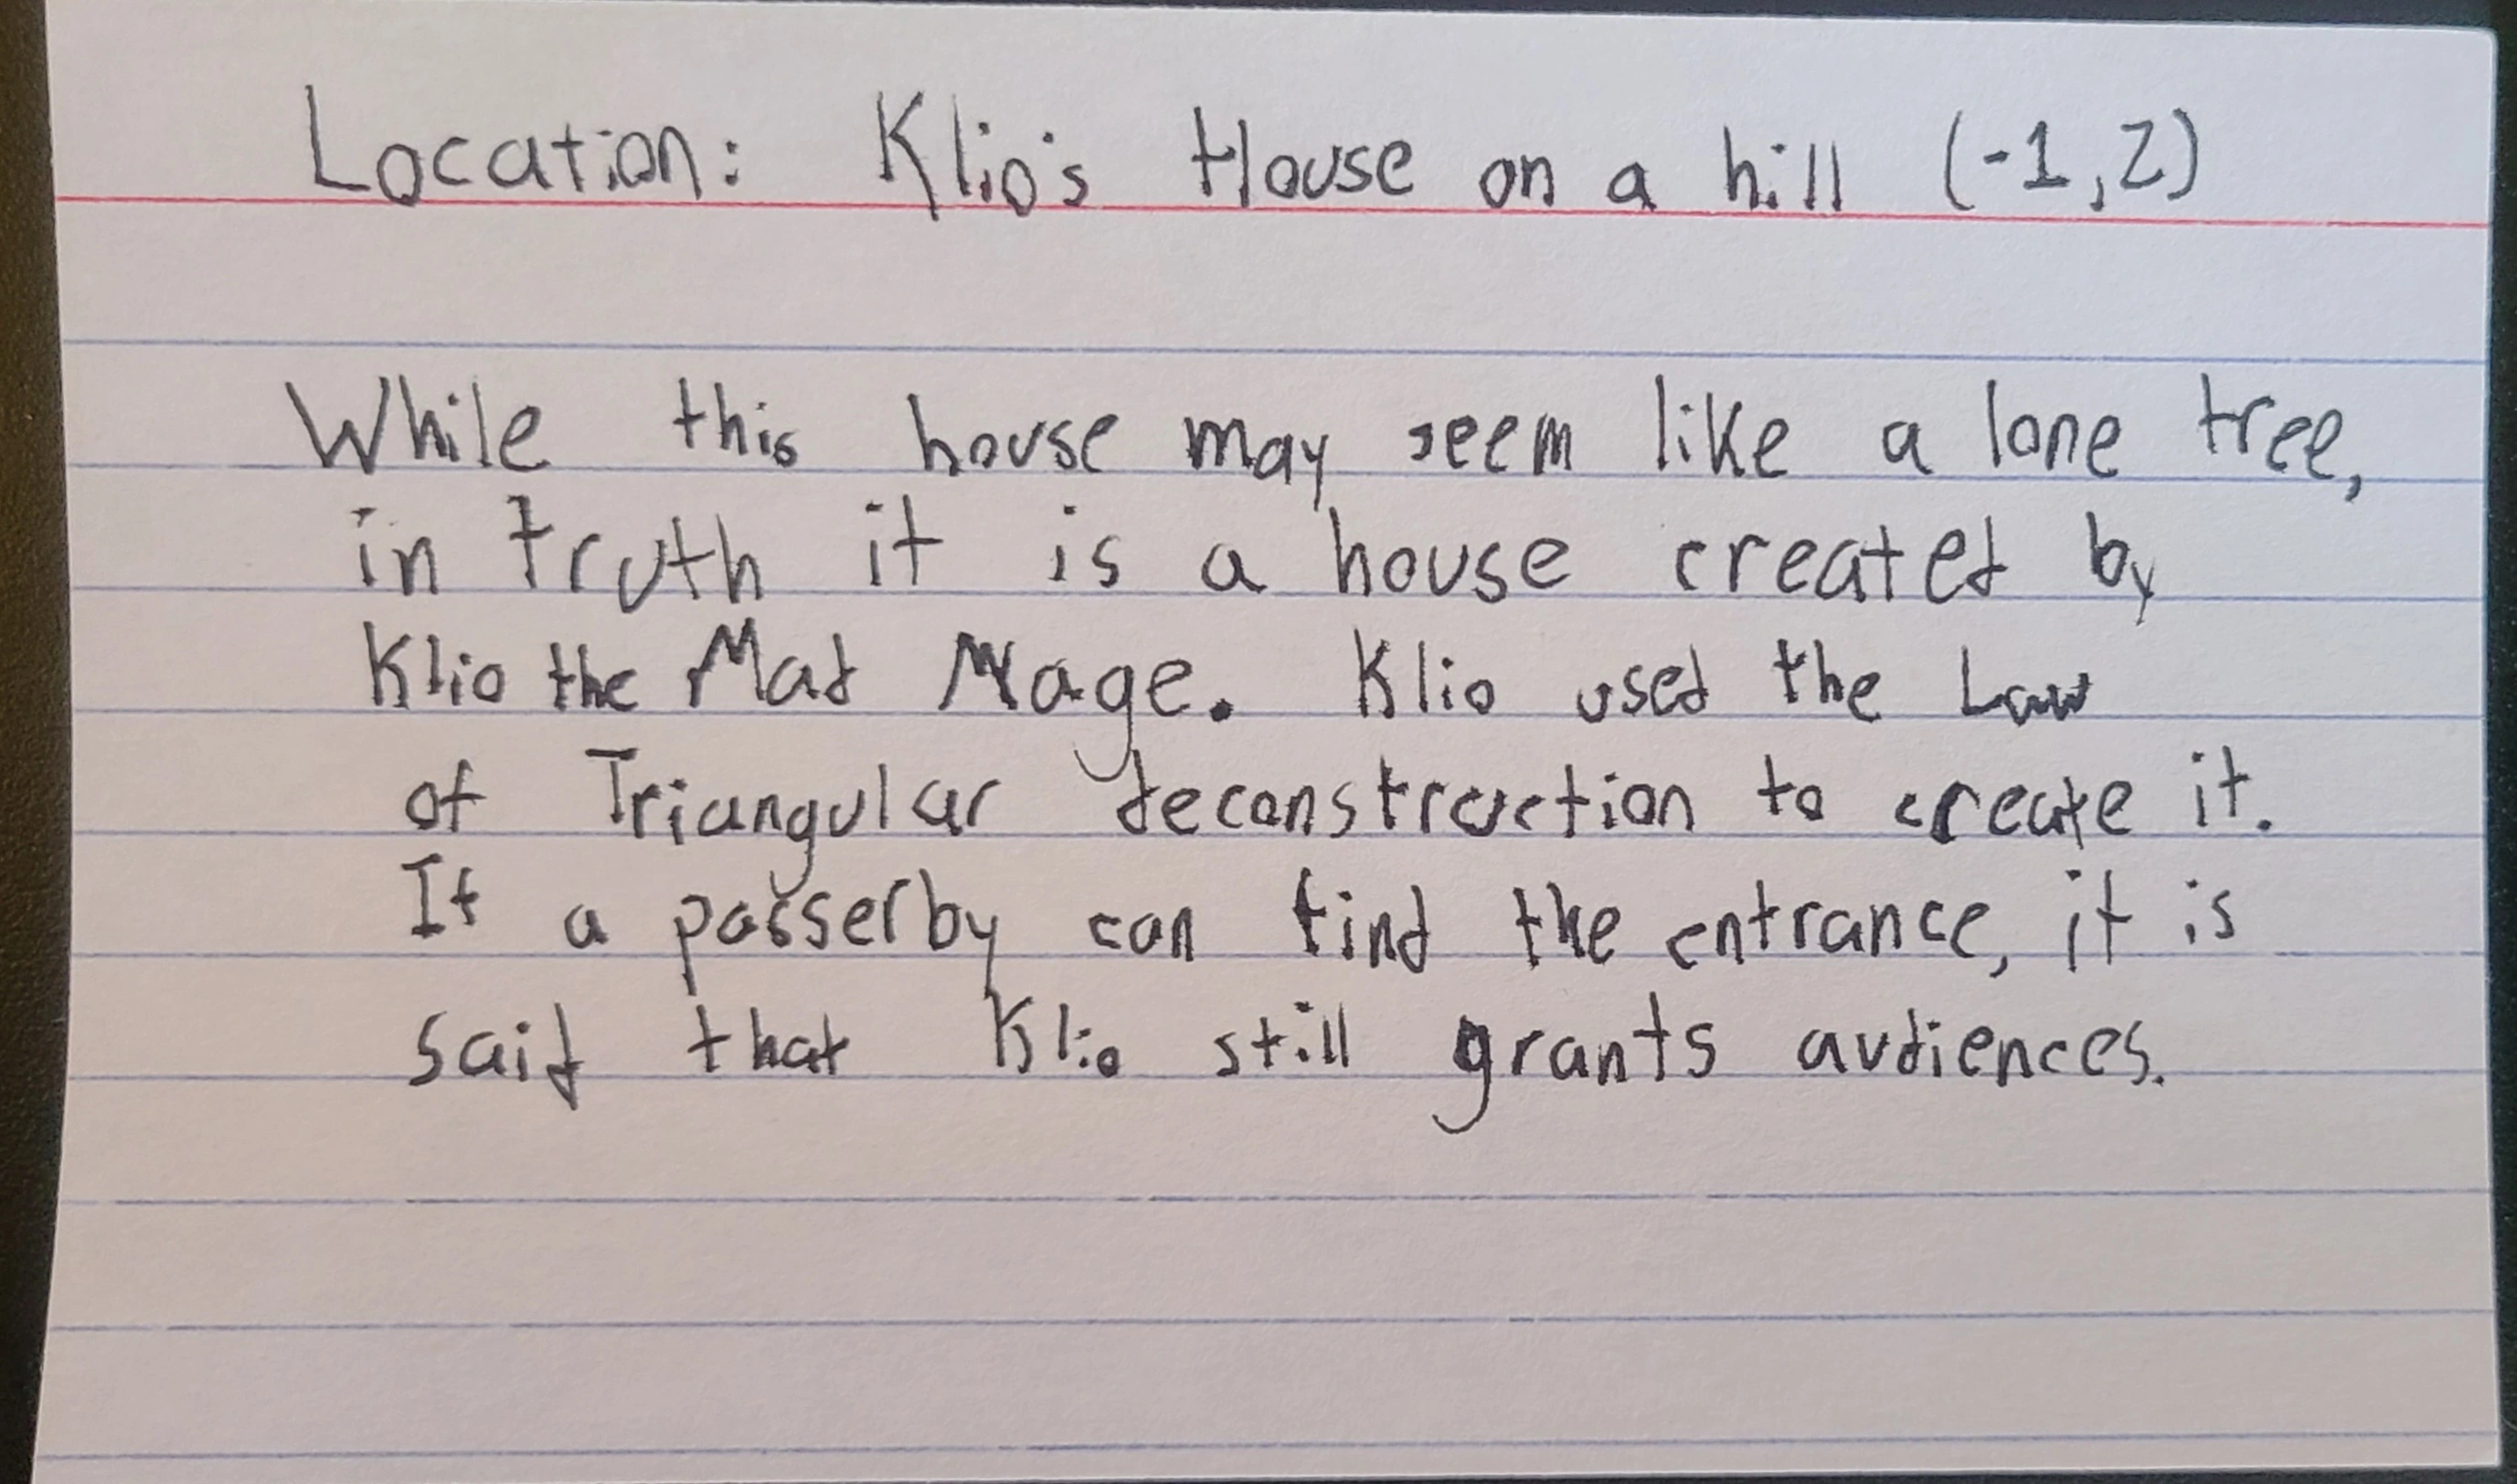 Location: Klio's House on a hill (-1,2)
While this house may seem like a lone tree,
in truth it is a house created by
Klio the Mad Mage. Klio used the Law
of Triangular deconstruction to create it.
If a passerby can find the entrance, it is
said that Klio still grants audiences.